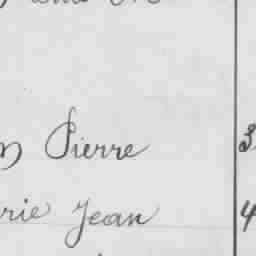 Pierre 3
rie Jean 4